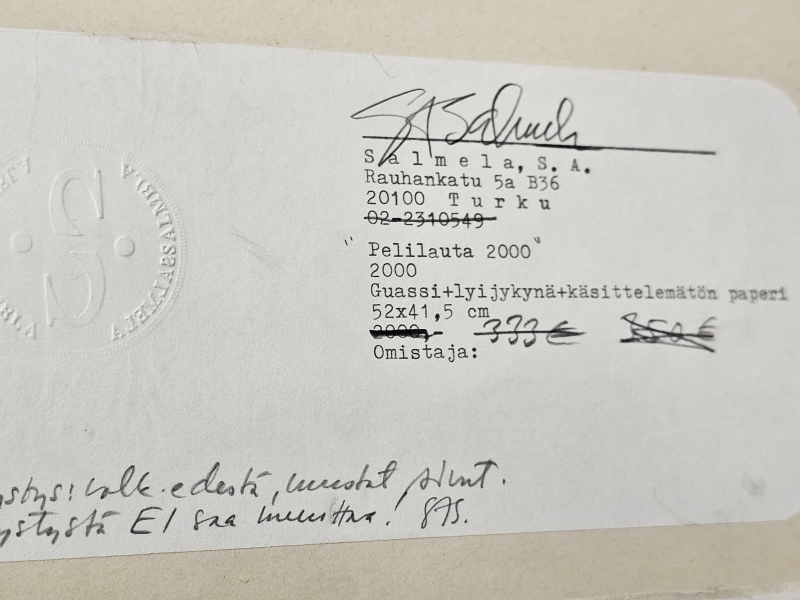 SASalmela
Salmela, S. A.
Rauhankatu 5a B36
20100 Turku
02-2310549
"Pelilauta 2000"
2000
Guassi+lyijykynä+käsittelemätön paperi
52x41,5 cm
2000,- 333€ 350€
Omistaja:
ystys: valk. edestä, mustat sivut.
ystystä EI saa muuttaa! SAS.
SALMELA